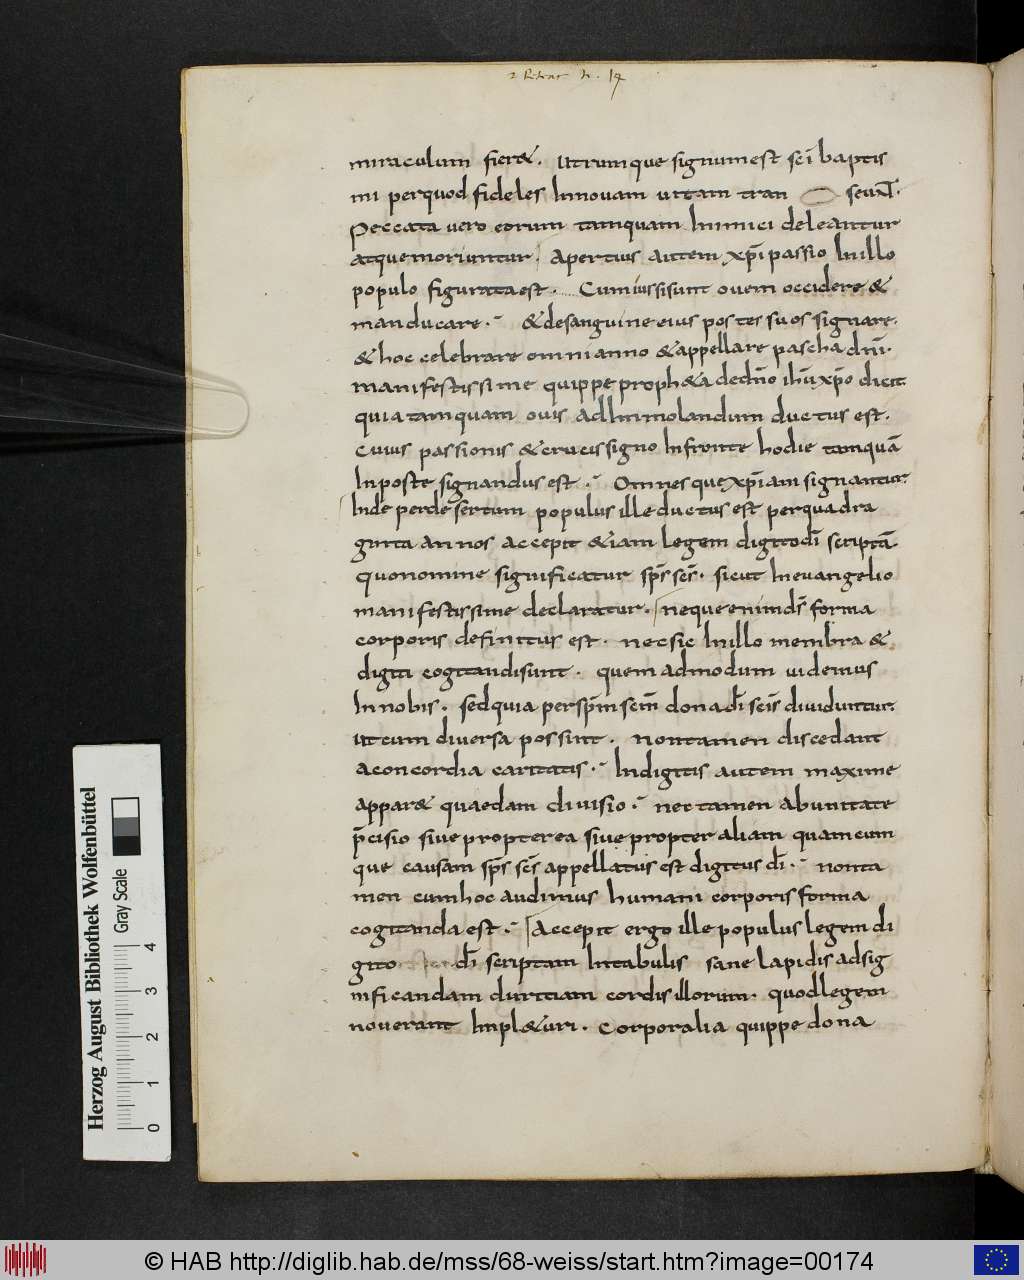 miraculum fier&. utrumque signum est sc̄i baptis
mi per quod fideles In novam vitam tran seuN̄t.
Peccata vero eorum tamquam Inimici deleantur
atque moriuntur. Apertius autem xp̄i passio In illo
populo figurata est. Cum iussi sunt ovem occidere &
manducare. & de sanguine eius postes suos signare.
& hoc celebrare omni anno & appellare pascha dn̄i.
manifestissime quippe proph&a de dn̄o ihū xp̄o dicit
quia tamquam ovis ad Inmolandum ductus est.
Cuius passionis & crucis signo In fronte hodie tamquā
In poste signandus est. Omnesque xp̄iani signantur.
Inde per desertum populus ille ductus est per quadra
ginta annos accepit & iam legem digito dī scriptā.
Quo nomine significatur sp̄s sc̄s. sicut In evangelio
manifestissime declaratur. neque enim ds̄ forma
corporis definitus est. nec sic In illo membra &
digiti cogitandi sunt. quemadmodum videmus
In nobis. sed quia per sp̄m sc̄m dona dī sc̄is dividuntur.
ut cum diversa possint. non tamen discedant
a concordia caritatis. In digitis autem maxime
appar& quaedam divisio. nec tamen ab unitate
p̄cisio sive propterea sive propter aliam quamcum
que causam sp̄s sc̄s appellatus est digitus dī. non ta
men cum hoc audimus humani corporis forma
cogitanda est. Accepit ergo ille populus legem di
gito dī scriptam In tabulis sane lapidis ad sig
nificandam duritiam cordis illorum. quod legem
noverant Inpl&uri. Corporalia quippe dona
Herzog August Bibliothek Wolfenbüttel
Gray Scale
0 1 2 3 4
© HAB http://diglib.hab.de/mss/68-weiss/start.htm?image=00174